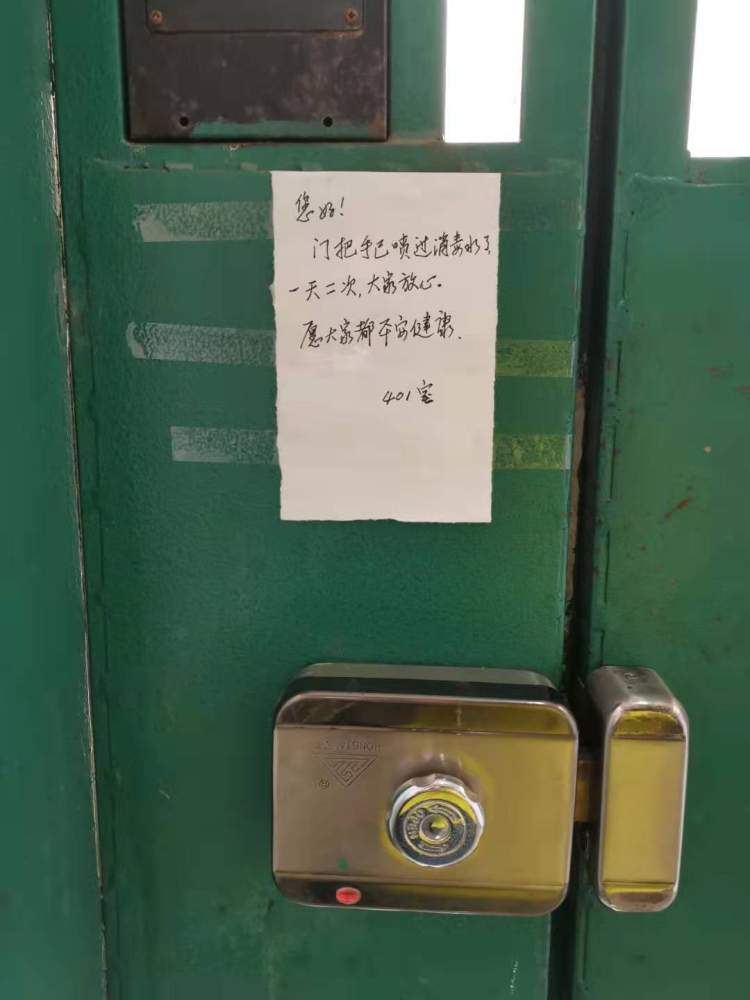 您好!
门把手已喷过消毒水了
一天二次,大家放心.
愿大家都平安健康.
401室
OPEN